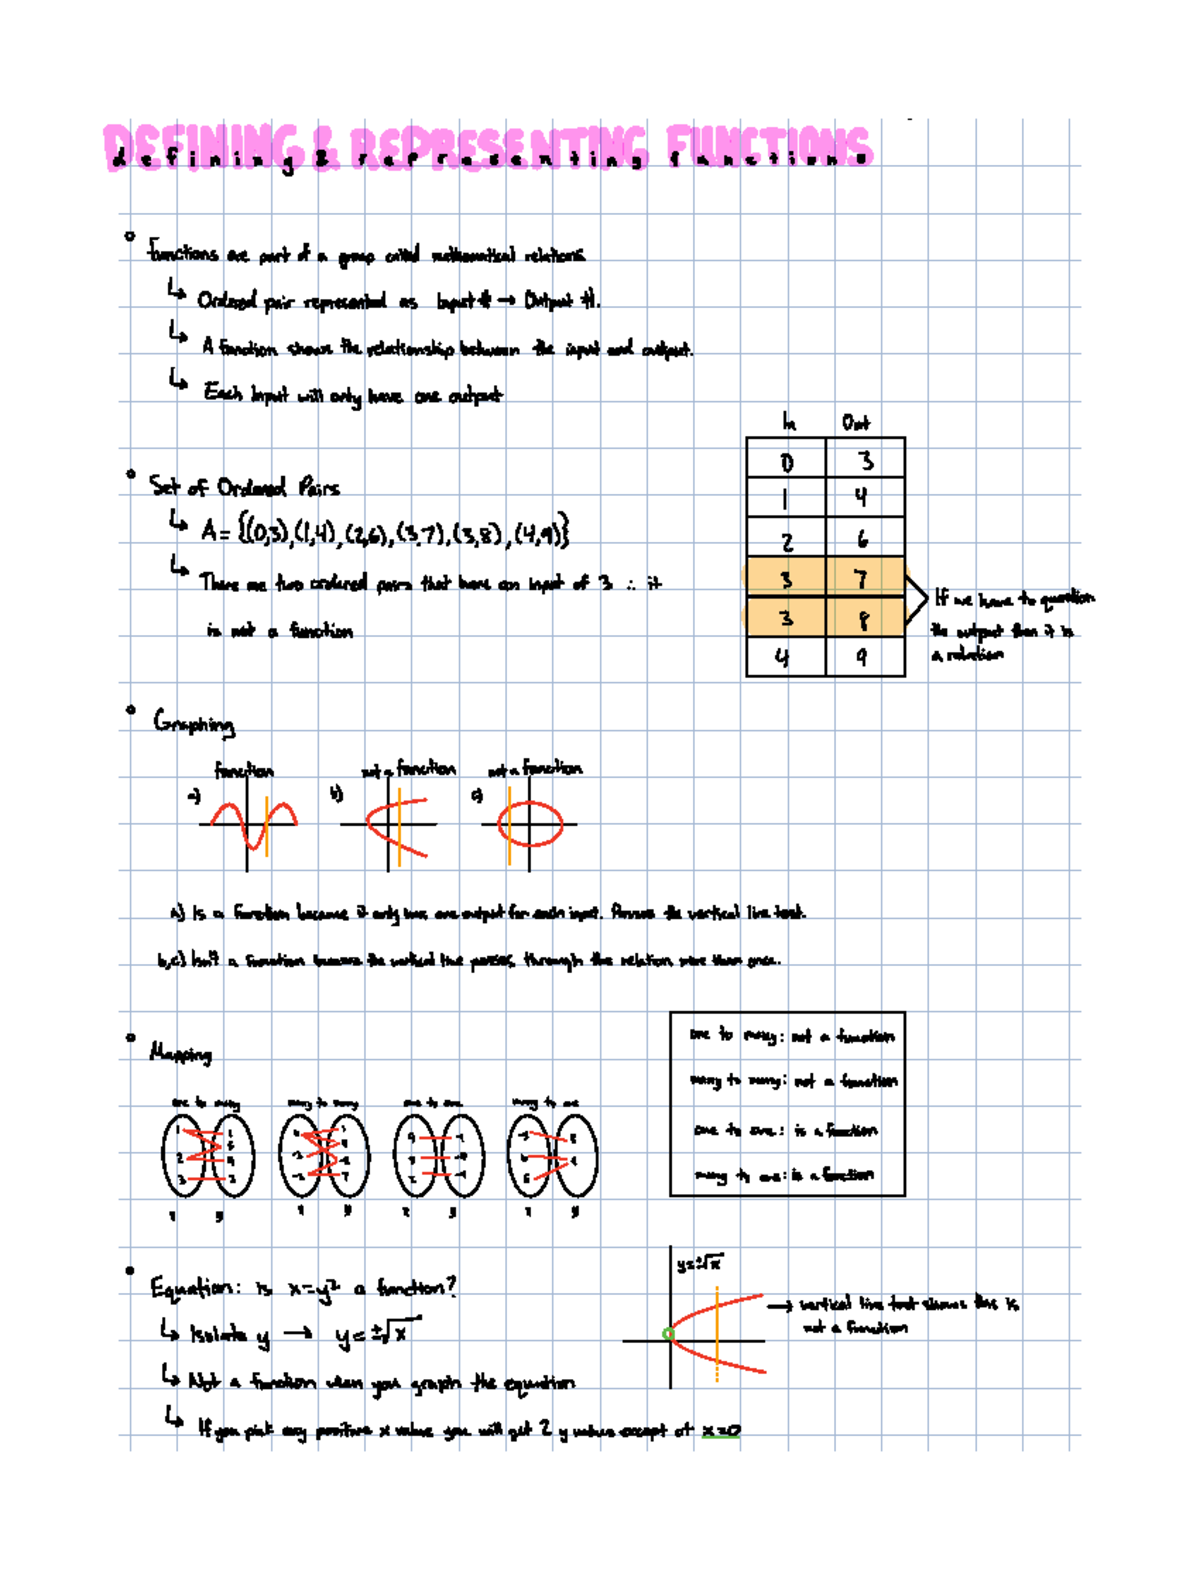 DEFINING & REPRESENTING FUNCTIONS
defining & representing functions
Functions are part of a group called mathematical relations
↳ Ordered pair represented as Input # → Output #.
↳ A function shows the relationship between the input and output.
↳ Each input will only have one output
In Out
0 3
1 4
2 6
3 7
3 8
4 9
If we have to question
the output then it is
a relation
Set of Ordered Pairs
↳ A = {(0,3),(1,4),(2,6),(3,7),(3,8),(4,9)}
↳ There are two ordered pairs that have an input of 3 ∴ it
is not a function
Graphing
function not a function not a function
a) b) c)
a) Is a function because it only has one output for each input. Passes the vertical line test.
b,c) Isn't a function because the vertical line passes through the relation more than once.
Mapping
one to many many to many one to one many to one
one to many: not a function
many to many: not a function
one to one: is a function
many to one: is a function
Equation: is x=y² a function?
↳ Isolate y → y=±√x
↳ Not a function when you graph the equation
↳ If you pick any positive x value you will get 2 y values except at x=0
y=±√x
→ vertical line test shows this is
not a function